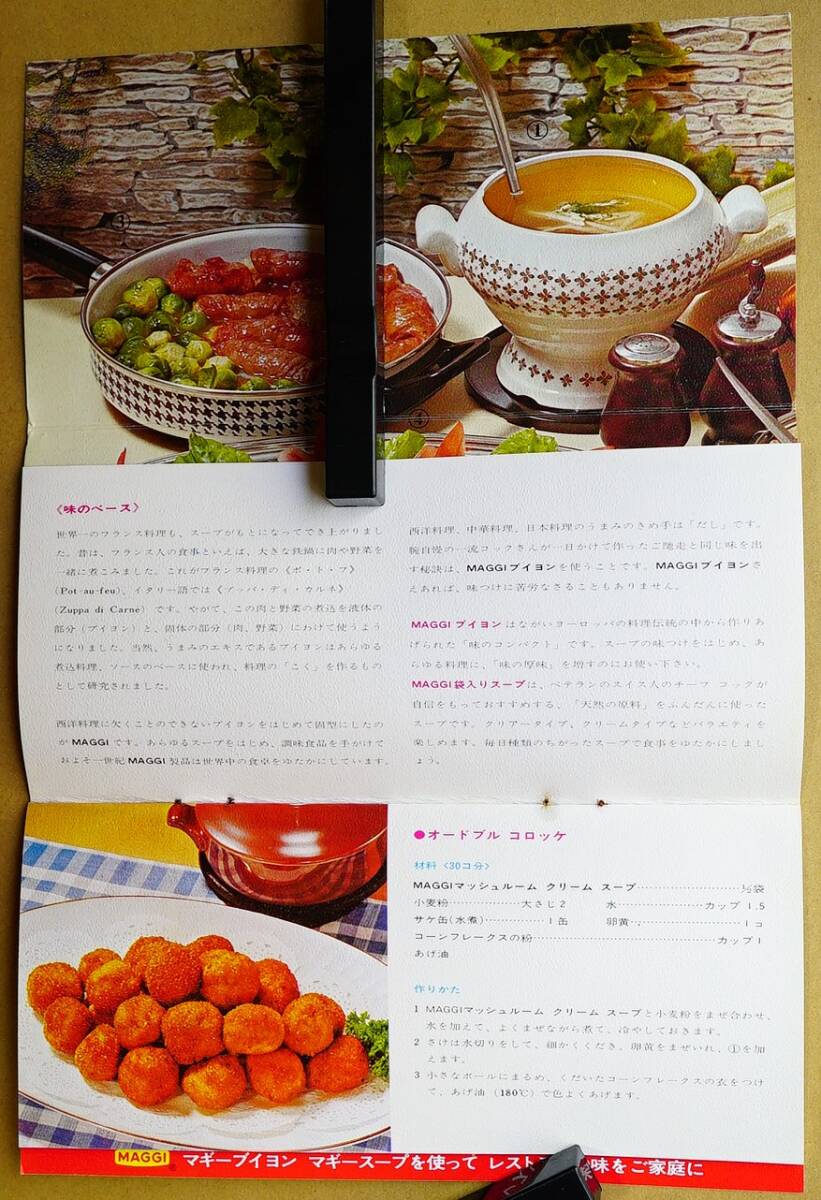 ①
③
④
《味のベース》
世界一のフランス料理も、スープがもとになってでき上がりまし
た。昔は、フランス人の食事といえば、大きな鉄鍋に肉や野菜を
一緒に煮こみました。これがフランス料理の《ポ・ト・フ》
(Pot-au-feu)、イタリー語では《ズッパ・ディ・カルネ》
(Zuppa di Carne) です。やがて、この肉と野菜の煮込を液体の
部分(ブイヨン)と、固体の部分(肉、野菜)にわけて使うよう
になりました。当然、うまみのエキスであるブイヨンはあらゆる
煮込料理、ソースのベースに使われ、料理の「こく」を作るもの
として研究されました。
西洋料理に欠くことのできないブイヨンをはじめて固型にしたの
がMAGGIです。あらゆるスープをはじめ、調味食品を手がけて
おおよそ一世紀MAGGI製品は世界中の食卓をゆたかにしています。
西洋料理、中華料理、日本料理のうまみのきめ手は「だし」です。
腕自慢の一流コックさんが一日かけて作ったご馳走と同じ味を出
す秘訣は、MAGGIブイヨンを使うことです。MAGGIブイヨンさ
えあれば、味つけに苦労なさることもありません。
MAGGI ブイヨンはながいヨーロッパの料理伝統の中から作りあ
げられた「味のコンパクト」です。スープの味つけをはじめ、あ
らゆる料理に、「味の原味」を増すのにお使い下さい。
MAGGI袋入りスープは、ベテランのスイス人のチーフ コックが
自信をもっておすすめする、「天然の原料」をふんだんに使った
スープです。クリアータイプ、クリームタイプなどバラエティを
楽しめます。毎日種類のちがったスープで食事をゆたかにしまし
ょう。
●オードブル コロッケ
材料〈30コ分〉
MAGGIマッシュルーム クリーム スープ……………½袋
小麦粉……………大さじ2 水……………カップ1.5
サケ缶(水煮)……………1缶 卵黄……………1コ
コーンフレークスの粉……………カップ1
あげ油
作りかた
1 MAGGIマッシュルーム クリーム スープと小麦粉をまぜ合わせ、
水を加えて、よくまぜながら煮て、冷やしておきます。
2 さけは水切りをして、細かくくだき、卵黄をまぜいれ、①を加
えます。
3 小さなボールにまるめ、くだいたコーンフレークスの衣をつけ
て、あげ油(180℃)で色よくあげます。
MAGGI® マギーブイヨン マギースープを使って レスト 味をご家庭に